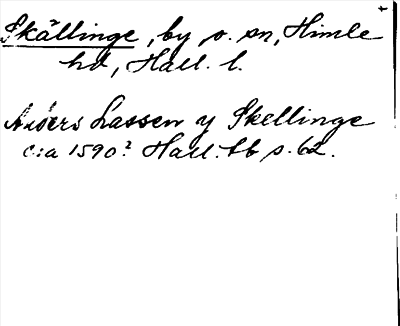 Skällinge, by o. sn, Himle
hd, Hall. l.
Anders Lassen y Skellinge
c:a 1590? Hall. tb s. 62.